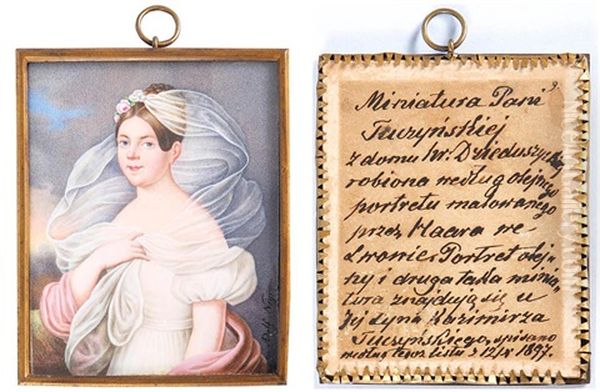 Miniatura Pani
Tuczyńskiej
z domu hr. Dzieduszyckiej
robiona według olejnego
portretu malowanego
przez Maara we
Lwowie. Portret olej-
ny i druga taka minia-
tura znajdują się u
Jej syna Kazimirza
Tuczyńskiego, spisano
według tegoż listu z 12/X 1897.